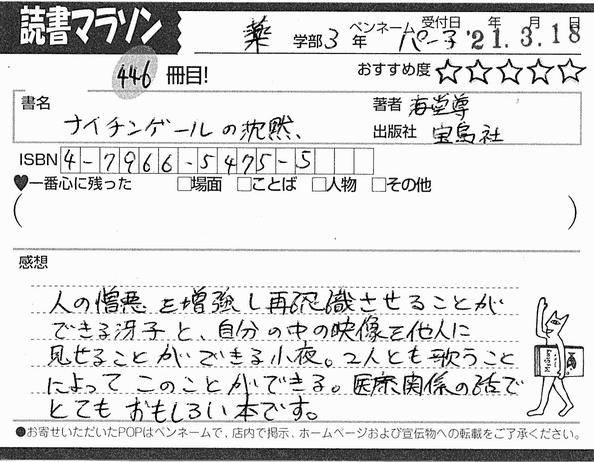 読書マラソン
薬 学部 3 年 ペンネーム パン子 受付日 年 月 日 '21.3.18
446 冊目! おすすめ度 ☆☆☆☆☆
書名 ナイチンゲールの沈黙、 著者 海堂尊
出版社 宝島社
ISBN 4-7966-5475-5
♥一番心に残った □場面 □ことば □人物 □その他
( )
感想
人の憎悪を増強し再認識させることが
できる冴子と、自分の中の映像を他人に
見せることができる小夜。2人とも歌うこと
によってこのことができる。医療関係の話で
とてもおもしろい本です。
●お寄せいただいたPOPはペンネームで、店内で掲示、ホームページおよび宣伝物への転載をご了承ください。